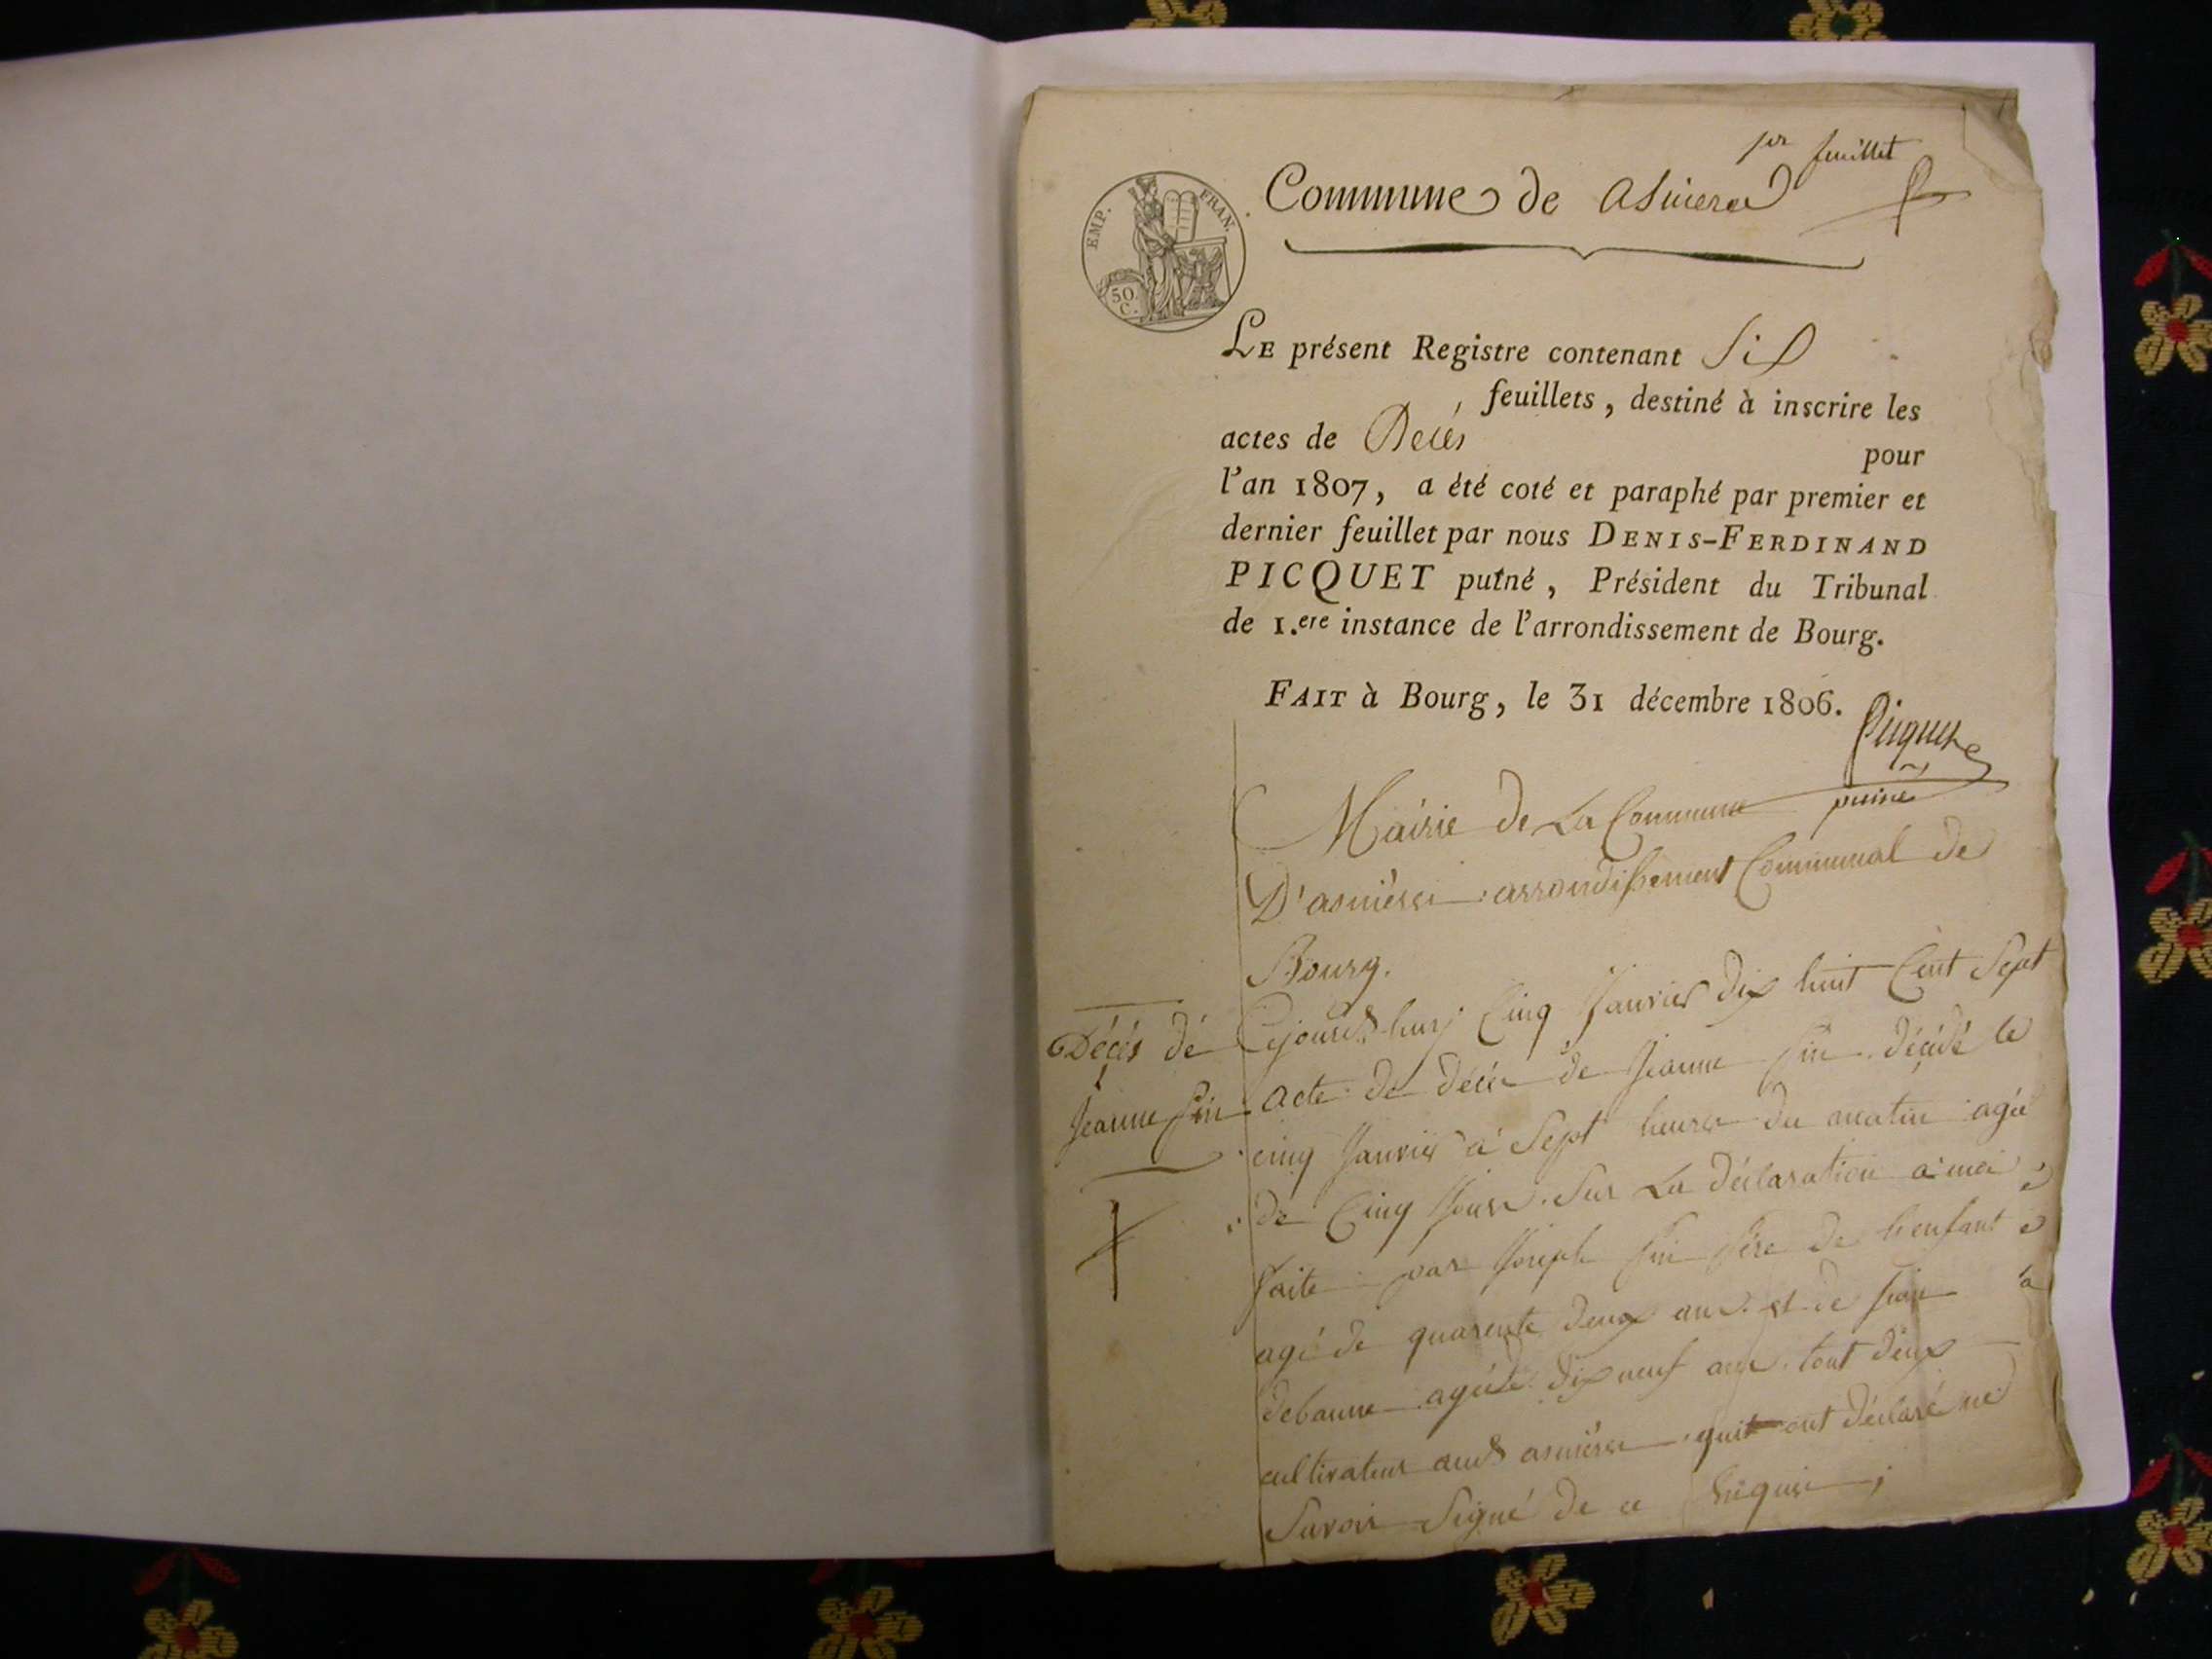 1er feuillet
Commune de asnieres
EMP. FRAN.
50.
C.
LE présent Registre contenant Six
feuillets, destiné à inscrire les
actes de Décés
pour
l'an 1807, a été coté et paraphé par premier et
dernier feuillet par nous DENIS-FERDINAND
PICQUET puîné, Président du Tribunal
de 1.ere instance de l'arrondissement de Bourg.
FAIT à Bourg, le 31 décembre 1806.
Picquet
puiné
Mairie de La Commune
D'asniéres arrondissement Communal de
Bourg.
Décés dé
Jeanne
Cejourd'huy Cinq Janvier dix huit Cent Sept
acte de décés de Jeanne décédé le
cinq Janvier a Sept heures du matin agée
de Cinq Jours. Sur La déclaration a moi
faite par Joseph Pére de l'enfant
agé de quarente deux ans et de Jean
debanne agé de dix neuf ans tout deux
cultivateur aud asniéres qui ont déclaré ne
Savoir Signé de ce Requis